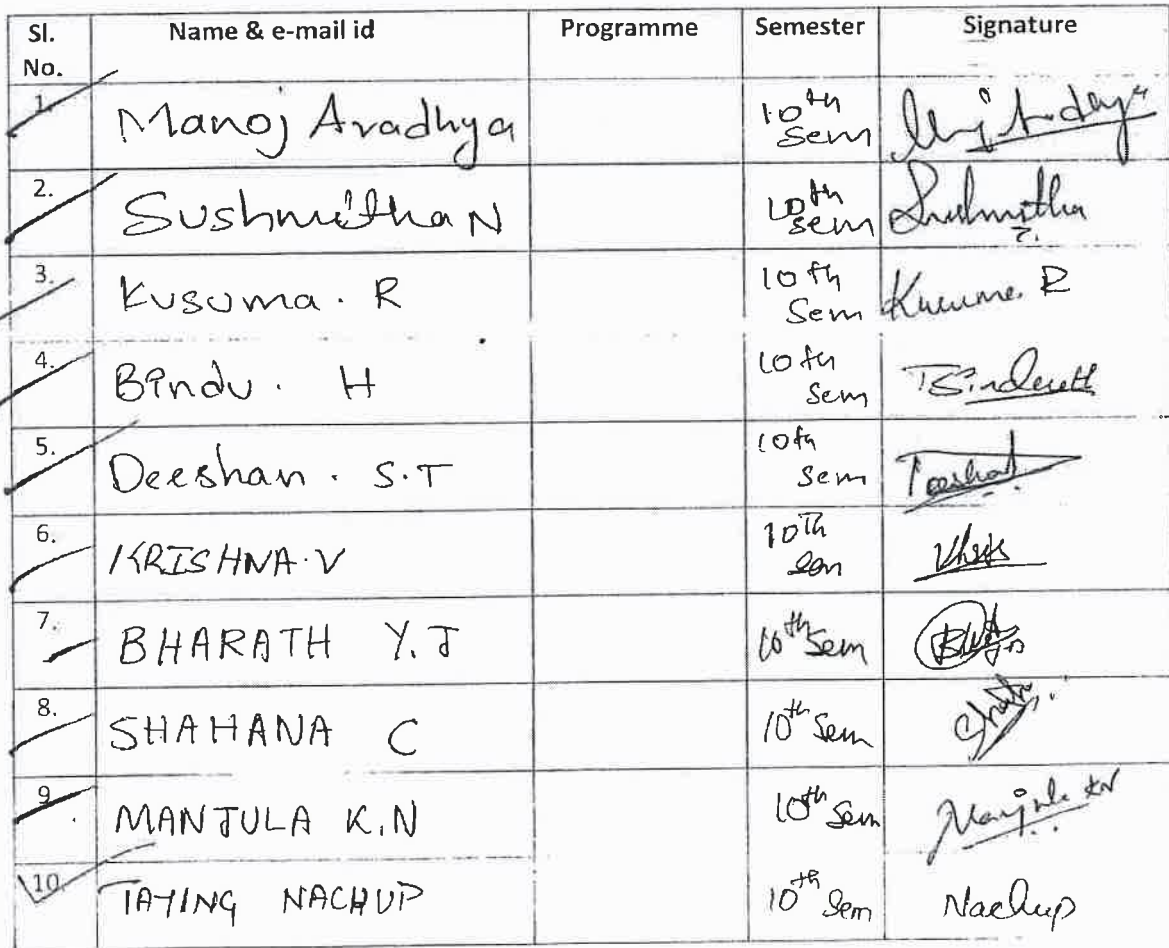 Sl. No. Name & e-mail id Programme Semester Signature
1. Manoj Aradhya 10th Sem
2. Sushmitha N 10th sem Sushmitha
3. Kusuma . R 10th Sem Kusuma. R
4. Bindu . H 10th Sem
5. Deeshan . S.T 10th Sem
6. KRISHNA.V 10Th Sem
7. BHARATH Y.J 10th Sem
8. SHAHANA C 10th Sem
9 MANJULA K.N 10th Sem Manjula KN
10 TAYING NACHUP 10th Sem Nachup